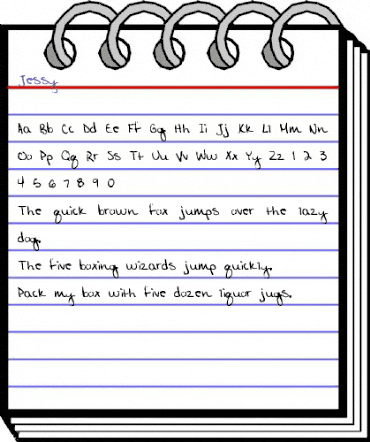 Jessy
Aa Bb Cc Dd Ee Ff Gg Hh Ii Jj Kk Ll Mm Nn
Oo Pp Qq Rr Ss Tt Uu Vv Ww Xx Yy Zz 1 2 3
4 5 6 7 8 9 0
The quick brown fox jumps over the lazy
dog.
The five boxing wizards jump quickly.
Pack my box with five dozen liquor jugs.